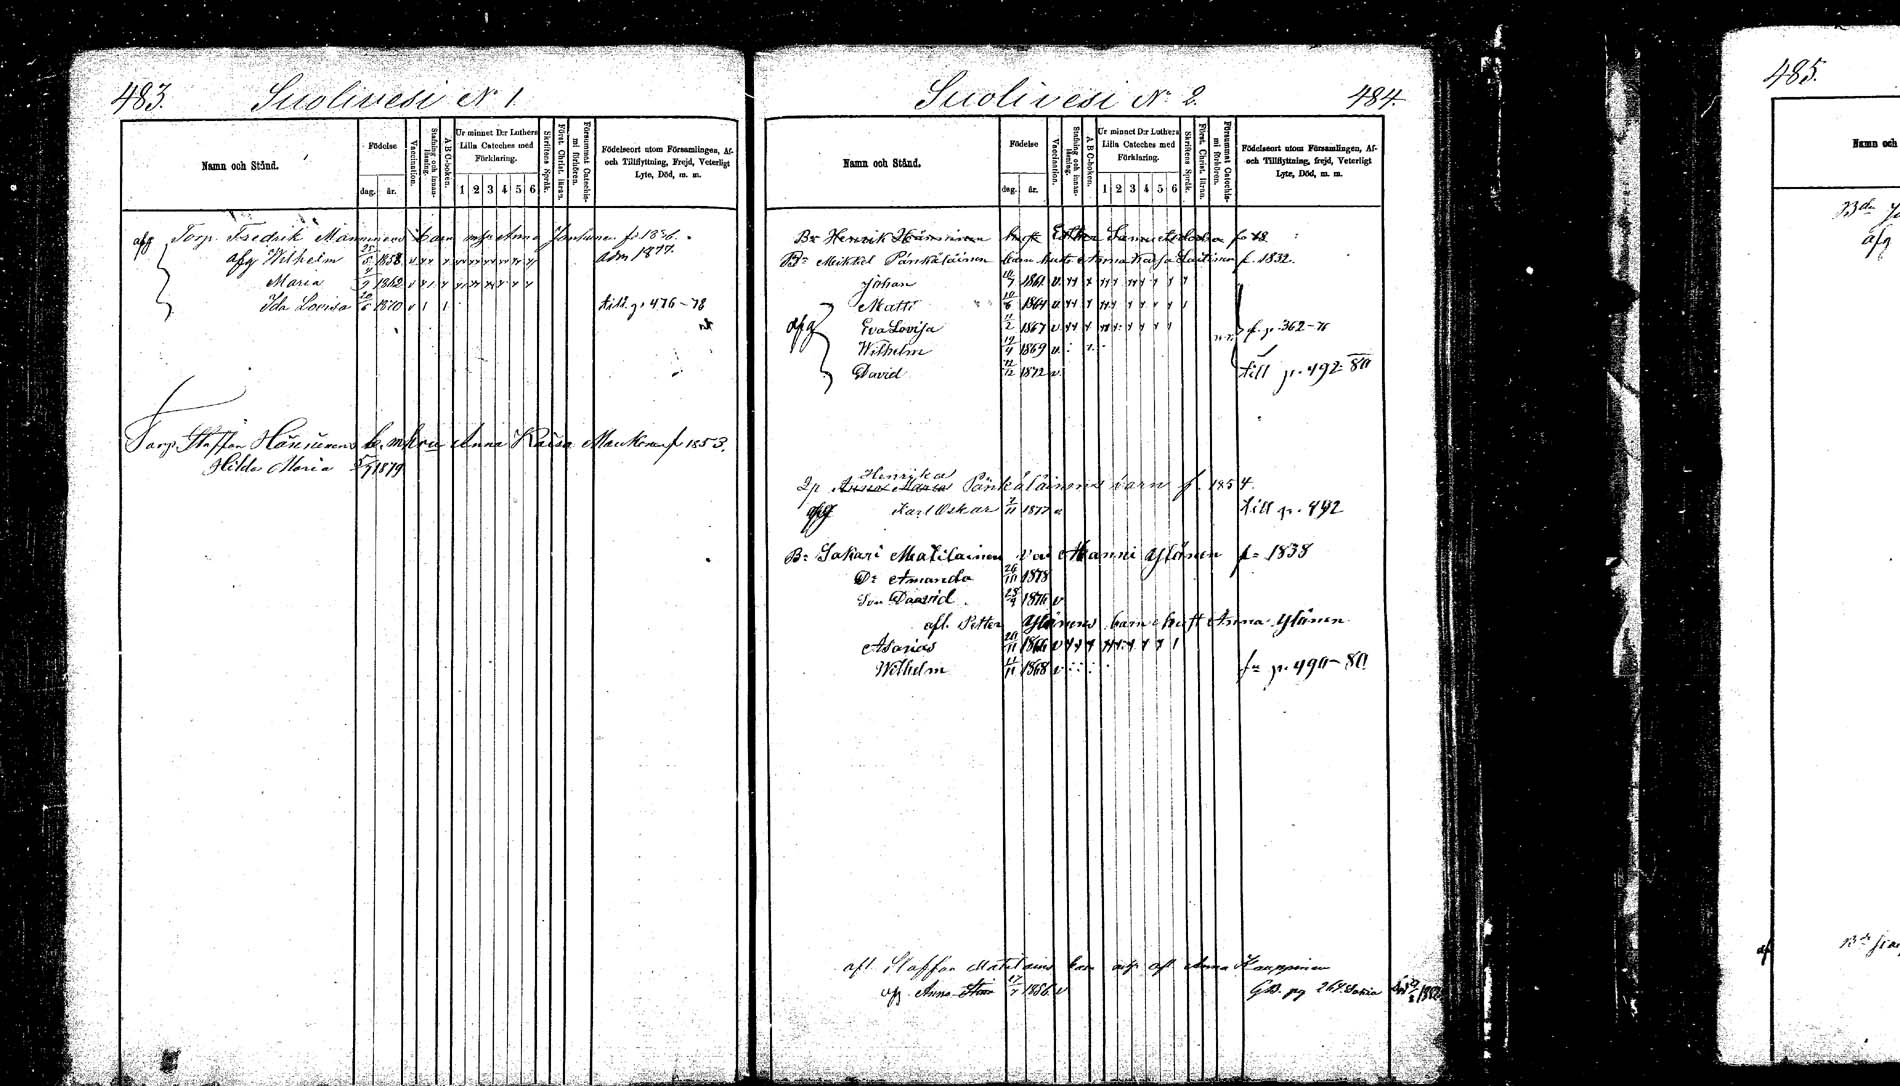 483. Suolivesi No 1.
Namn och Stånd.
Födelse
dag. år.
Vaccination.
Stafning och innanläsning.
A B C-boken.
Ur minnet D:r Luthers Lilla Cateches med Förklaring.
1 2 3 4 5 6
Skriftens Språk.
Först. Christ. läran.
Försummat Catechismi förhören.
Födelseort utom Församlingen, Af- och Tillflyttning, Frejd, Veterligt Lyte, Död, m. m.
afg Torp. Fredrik Manninens barn m hu Anna Janhunen f. 1836.
afg Wilhelm 25/5 1858 v adm 1877.
Maria 4/9 1862 v
Ida Lovisa 20/6 1870 v till p. 476-78
Torp. Staffan Hänninens b. m hru Anna Kaisa Maukonen f 1853.
Hilda Maria 5/9 1879
Suolivesi No 2. 484.
Namn och Stånd.
Födelse
dag. år.
Vaccination.
Stafning och innanläsning.
A B C-boken.
Ur minnet D:r Luthers Lilla Cateches med Förklaring.
1 2 3 4 5 6
Skriftens Språk.
Först. Christ. läran.
Försummat Catechismi förhören.
Födelseort utom Församlingen, Af- och Tillflyttning, frejd, Veterligt Lyte, Död, m. m.
Bn Henrik Hänninen
Bn Mikkel Pänkäläinen barn hust Anna Kaisa Laitinen f. 1832.
Johan 10/7 1861 v.
Matti 10/6 1864 v
afg Eva Lovisa 11/2 1867 v f. p. 362-76
Wilhelm 19/4 1869 v.
David 12/12 1872 v. till p. 492-80
Henrika
Ip Anna Maria Pänkäläinens barn f. 1854.
afg Karl Oskar 7/11 1877 v till p. 492
Bn Sakari Matilainen Manni Ylönen f. 1838
Dr Amanda 26/10 1878
Son Daavid 28/9 1876 v
afl. Petter Ylönens barn hust Anna Ylönen
Asarias 20/11 1866 v
Wilhelm 11/11 1868 v fr p. 490-80
afl. Staffan Matilains barn afl Anna Kauppinen
afg. Anna Stina 17/7 1856 v GB. pg 264. Död 1882
485.
Namn och
Bdn
afg
af Bdn